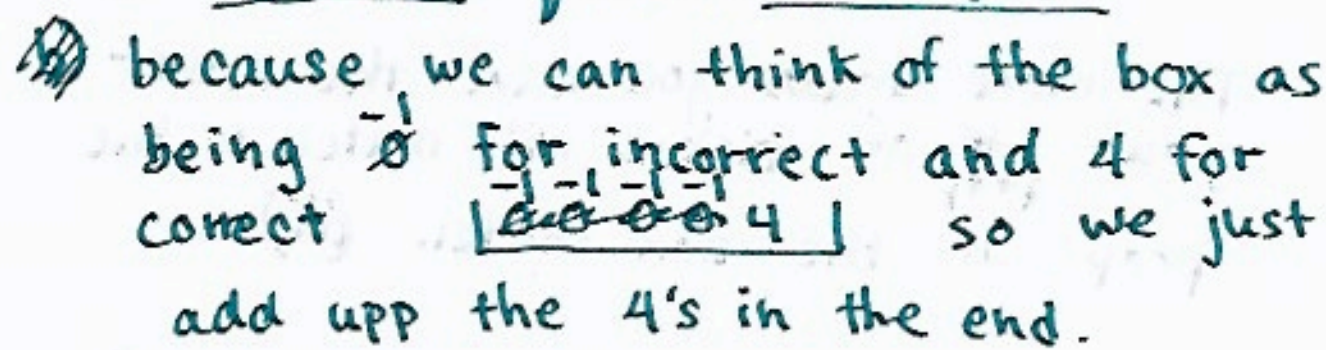 because we can think of the box as
being -1 for incorrect and 4 for
correct -1 -1 -1 -1 4 so we just
add upp the 4's in the end.